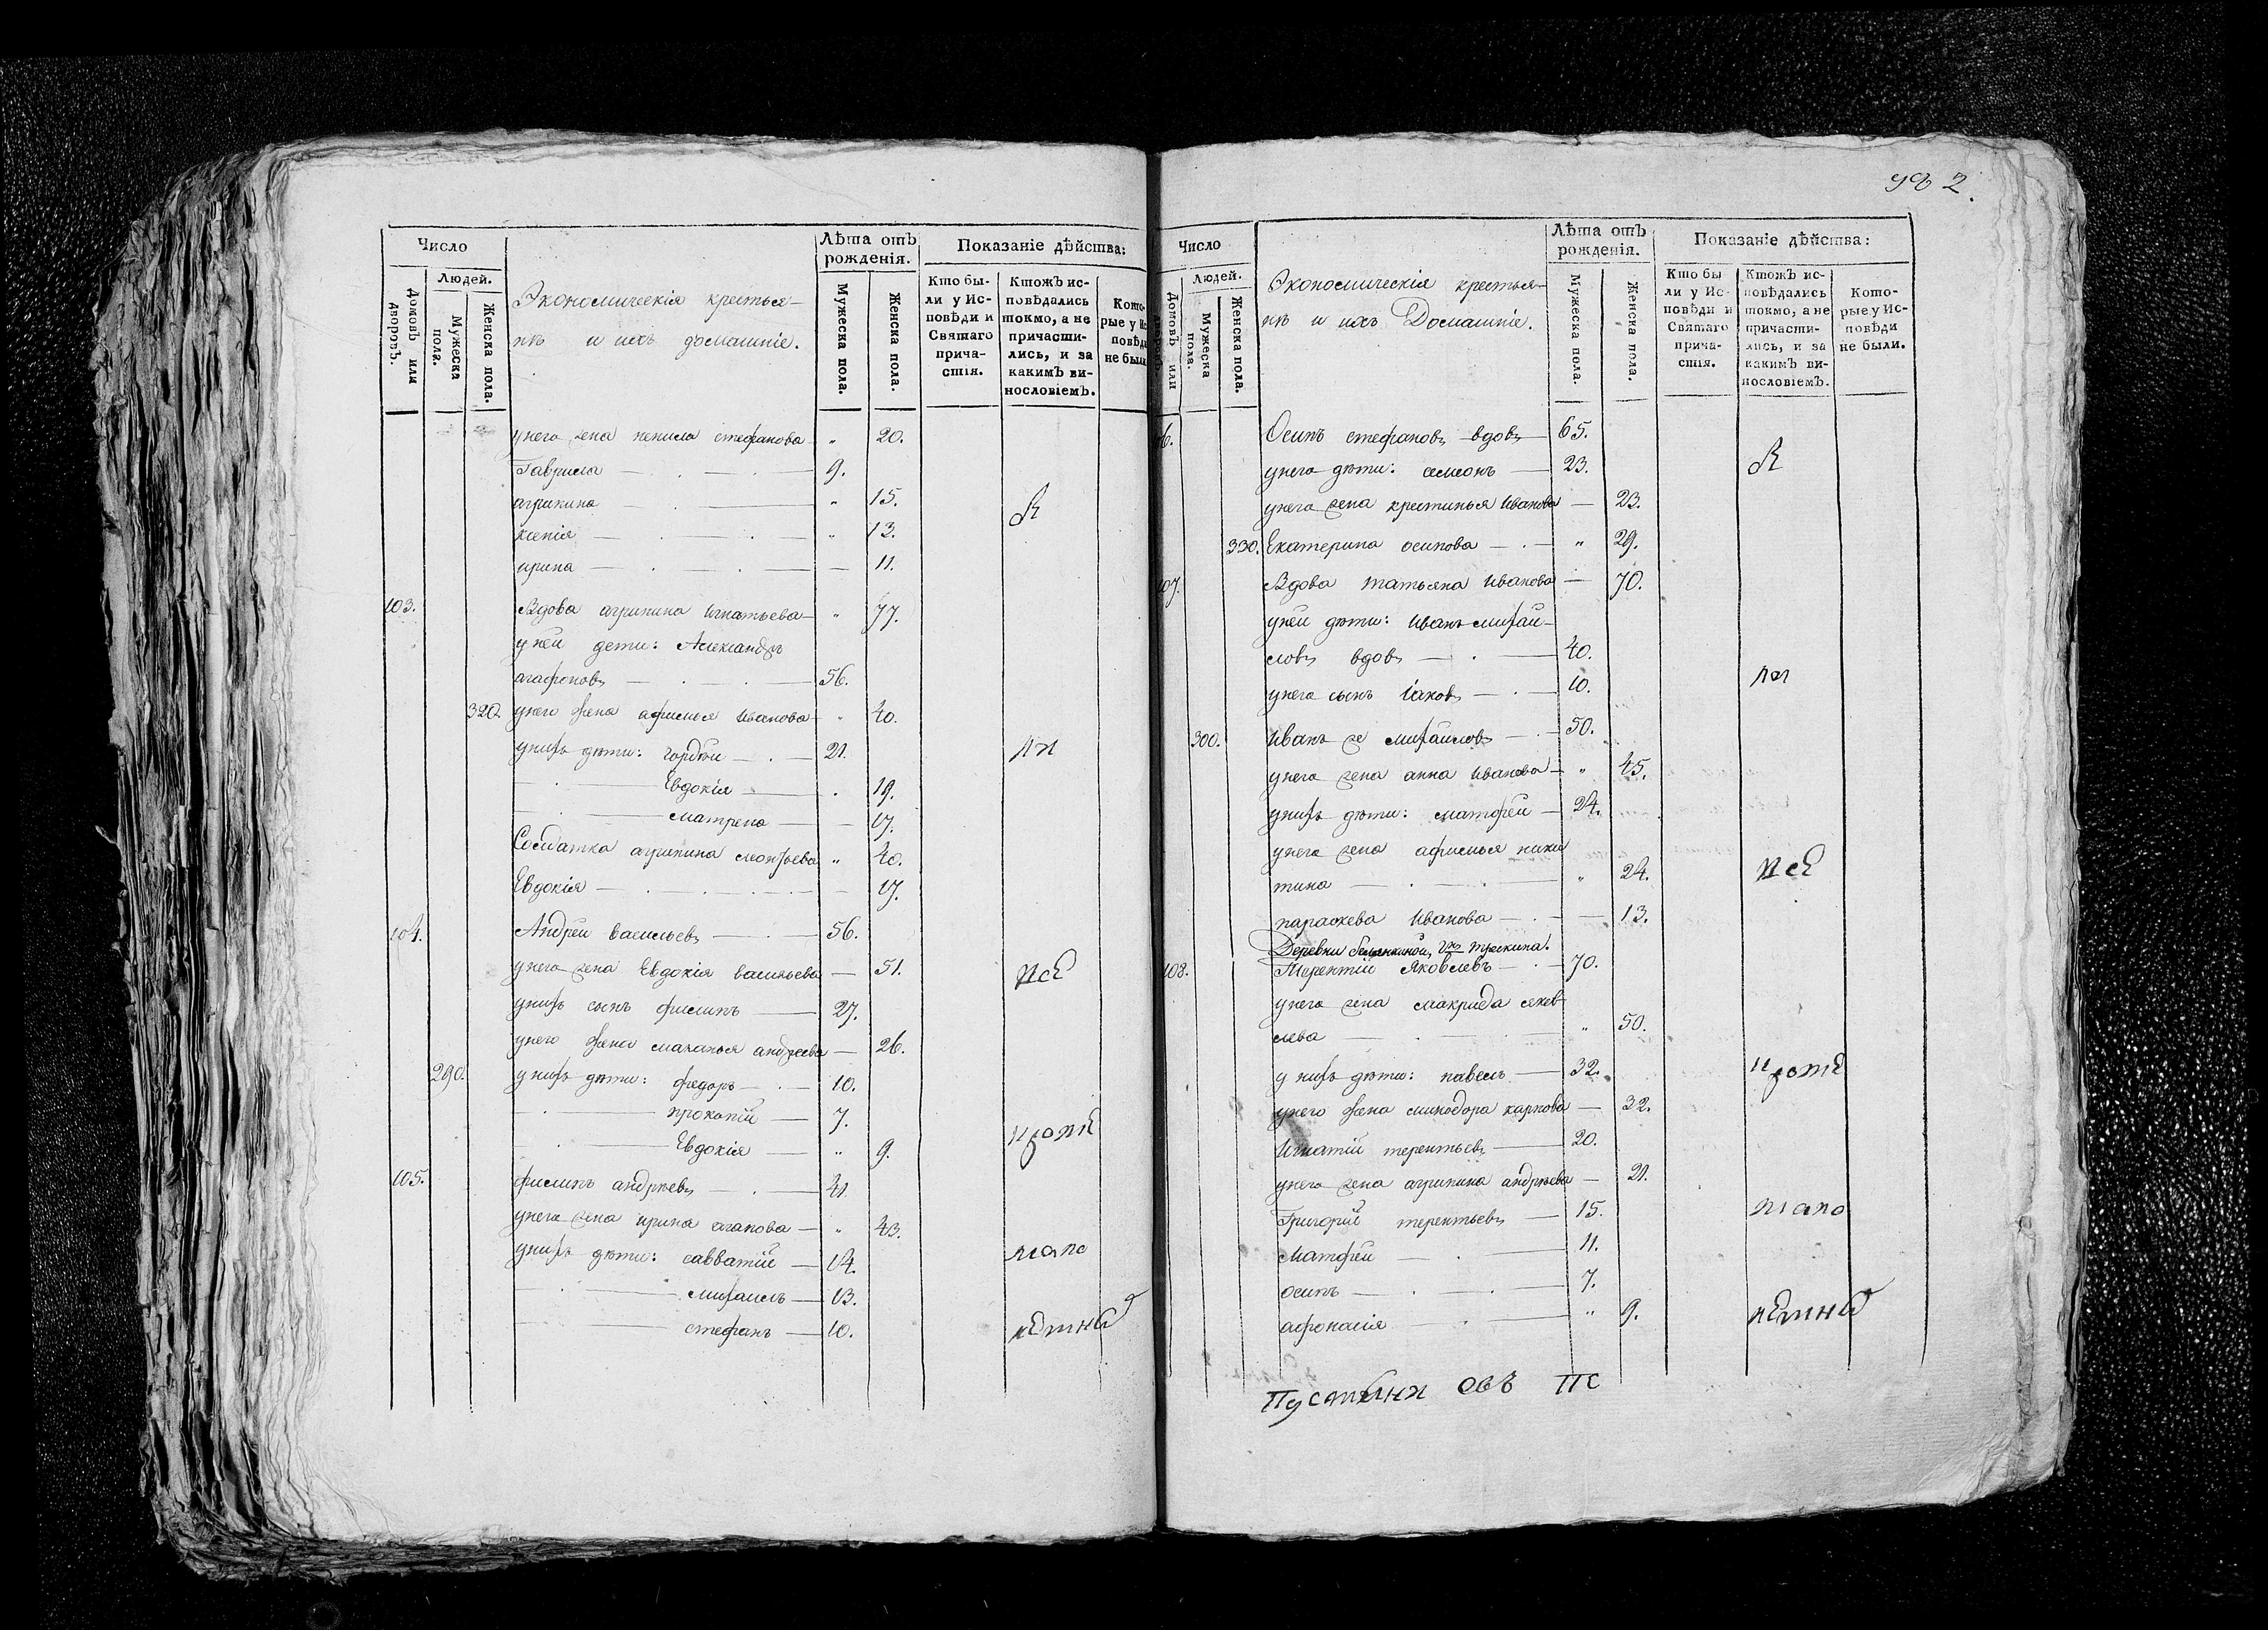 Число
Людей.
Домовъ или дворовъ.
Мужеска пола.
Женска пола.
Экономическія крестья-
не и ихъ домашніе.
Лѣта отъ рожденія.
Мужеска пола.
Женска пола.
Показаніе дѣйства:
Кто бы-
ли у Ис-
повѣди и
Святаго
прича-
стія.
Ктожъ ис-
повѣдались
токмо, а не
причасти-
лись, и за
какимъ ви-
нословіемъ.
Кото-
рые у Ис
повѣди
не были
у него жена ненила стефанова „ 20.
Гаврила 9.
агрипина „ 15.
ксенія „ 13.
ирина — 11.
103. Вдова агрипина игнатьева „ 77.
у ней дети: Александръ
агафоновъ 56.
320. у него жена афимья иванова „ 40.
у нихъ дѣти: гордѣи 21.
Евдокія 19.
матрена 17.
Солдатка агрипина леонтьева „ 40.
Евдокія — 17.
104. Андреи васильевъ 56.
у него жена Евдокія васильева — 51.
у нихъ сынъ филипъ 27.
у него жена маланья андреева — 26.
290. у нихъ дѣти: федоръ 10.
прокопіи 7.
Евдокія „ 9.
105. филипъ андреевъ 41
у него жена ирина агапова „ 43.
у нихъ дѣти: савватіи 14.
михаилъ 13.
стефанъ 10.
Число
Людей.
Домовъ или дворовъ.
Мужеска пола.
Женска пола.
Экономическія крестья-
не и ихъ Домашніе.
Лѣта отъ рожденія.
Мужеска пола.
Женска пола.
Показаніе дѣйства:
Кто бы
ли у Ис-
повѣди и
Святаго
прича-
стія.
Ктожъ ис-
повѣдались
токмо, а не
причасти-
лись, и за
какимъ ви-
нословіемъ.
Кото-
рые у Ис-
повѣди
не были.
6. Осипъ стефановъ вдовъ 65.
у него дѣти: семионъ 23.
у него жена крестинья иванова — 23.
330. Екатерина осипова „ 29.
107. Вдова татьяна иванова — 70.
у ней дѣти: иванъ михаи-
ловъ вдовъ 40.
у него сынъ іаковъ 10.
300. иванъ же михаиловъ 50.
у него жена анна иванова „ 45.
у нихъ дѣти: матфеи 24.
у него жена афимья ники
тина „ 24.
параскева иванова — 13.
108. Терентіи Яковлевъ 70.
у него жена макрида яков
лева „ 50.
у нихъ дѣти: павелъ 32.
у него жена минодора карпова — 32.
Игнатіи терентьевъ 20.
у него жена агрипина андреева — 21.
Григоріи терентьевъ 15.
Матфеи 11.
осипъ 7.
афонасія „ 9.
Пустыни